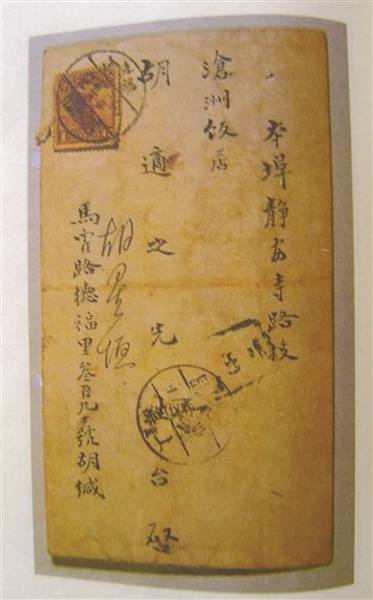 本埠靜安寺路投
滄洲飯店
胡適之先 台啓
馬霍路德福里叁百九十號胡緘